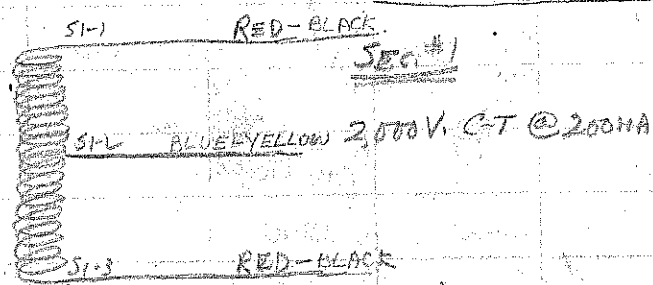 S1-1 RED-BLACK
SEC. #1
S1-2 BLUE-YELLOW 2,000V. C-T @ 200MA
S1-3 RED-BLACK